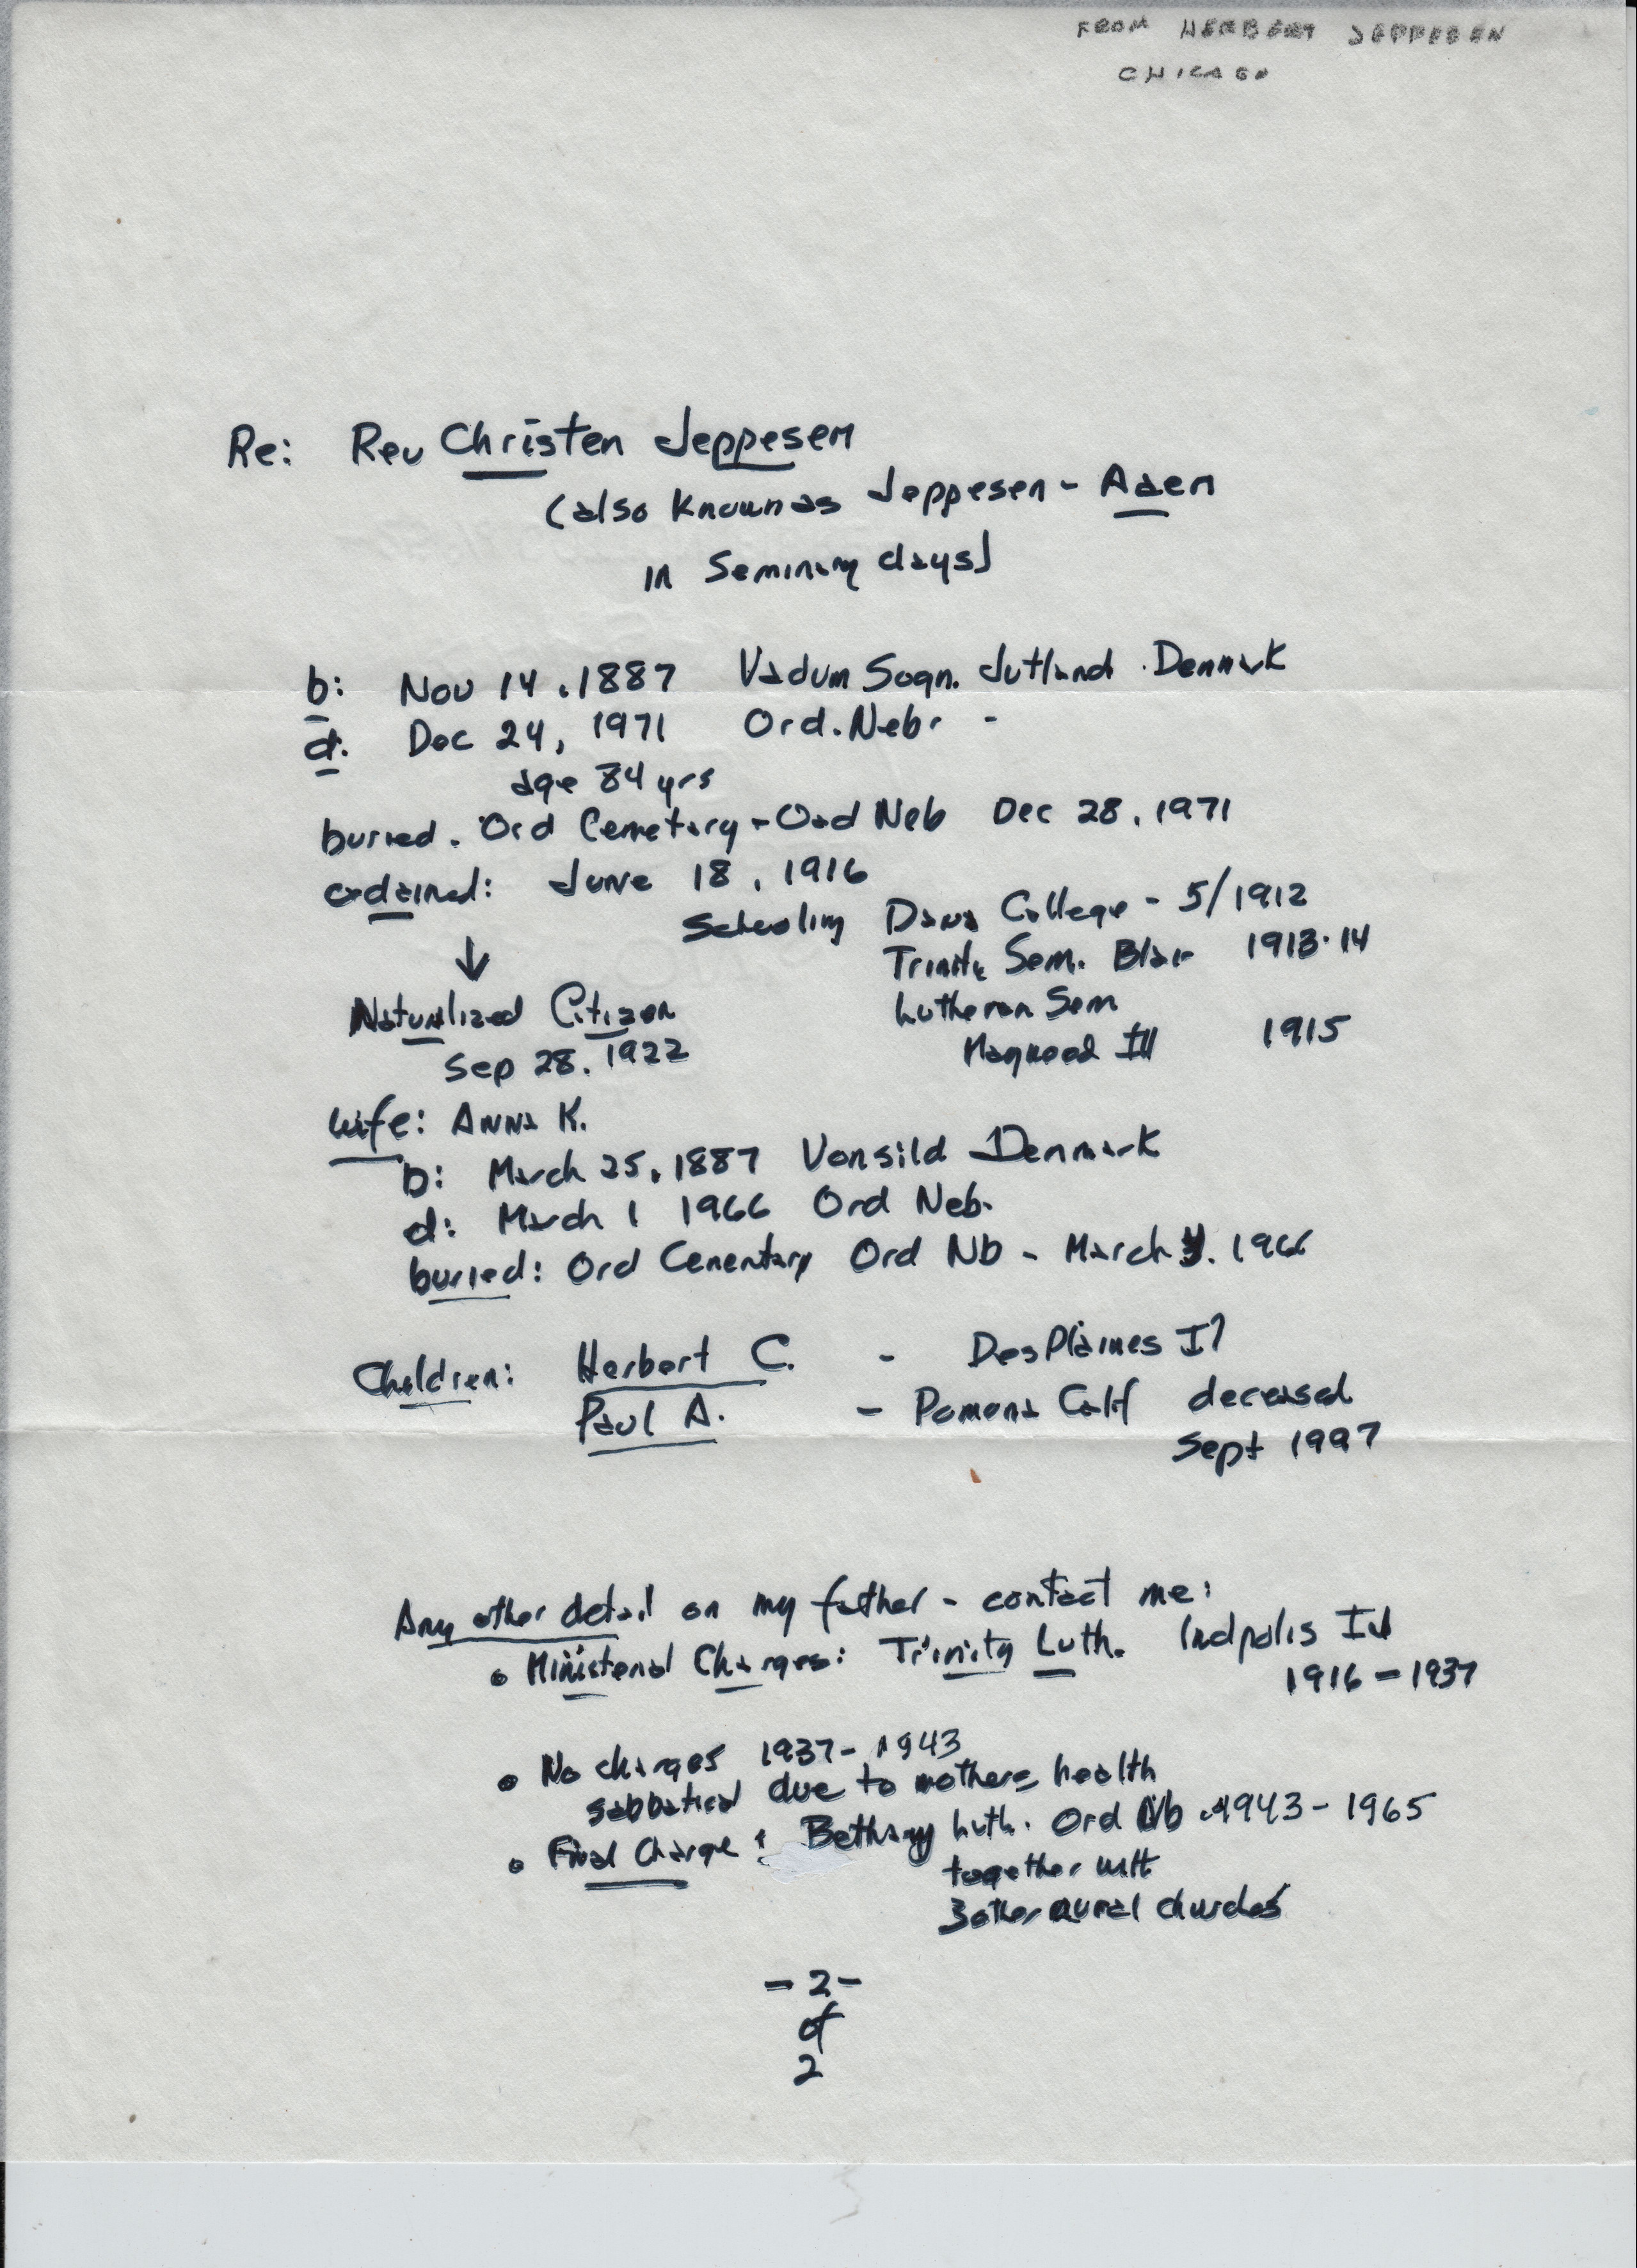 FROM HERBERT JEPPESEN
CHICAGO
Re: Rev Christen Jeppesen
(also known as Jeppesen - Aaen
in Seminary days)
b: Nov 14, 1887 Vadum Sogn. Jutland. Denmark
d. Dec 24, 1971 Ord. Nebr -
age 84 yrs
buried. Ord Cemetary - Ord Neb Dec 28, 1971
ordained: June 18, 1916
Schooling Dana College - 5/1912
Trinity Sem. Blair 1913-14
↓
Naturalized Citizen
Sep 28, 1922
Lutheran Sem
Maywood Ill 1915
Wife: Anna K.
b: March 25, 1887 Vonsild Denmark
d: March 1 1966 Ord Neb.
buried: Ord Cementary Ord Nb - March 1966
Children: Herbert C. - DesPlaines Il
Paul A. - Pomona Calif deceased
Sept 1997
Any other detail on my father - contact me:
• Ministerial Charges: Trinity Luth. Indpolis Ind
1916 - 1937
• No charges 1937 - 1943
sabbatical due to mothers health
• Final Charge: Bethany Luth. Ord Nb. 1943 - 1965
together with
3 other rural churches
- 2 -
of
2